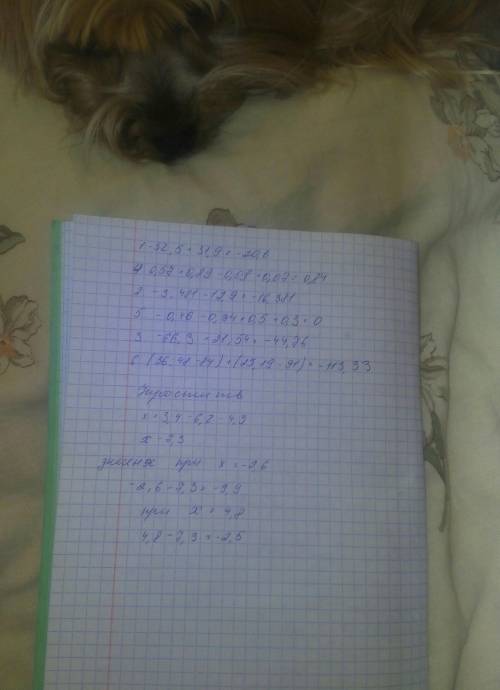 1 -52,5 + 31,9 = -20,6
4 0,57 + 0,29 - 0,69 + 0,07 = 0,24
2 -3,481 - 12,9 = -16,381
5 -0,46 - 0,34 + 0,5 + 0,3 = 0
3 -66,3 + 21,54 = -44,76
6 (36,42 - 84) + (25,19 - 91) = -113,33
x + 3,4 - 6,2 - 4,5
x - 7,3
при x = -2,6
-2,6 - 7,3 = -9,9
при x = 4,8
4,8 - 7,3 = -2,5